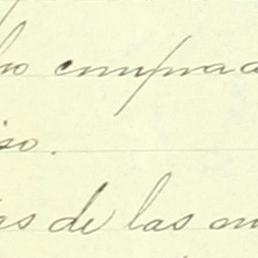 ho comprad
iso.
as de las m